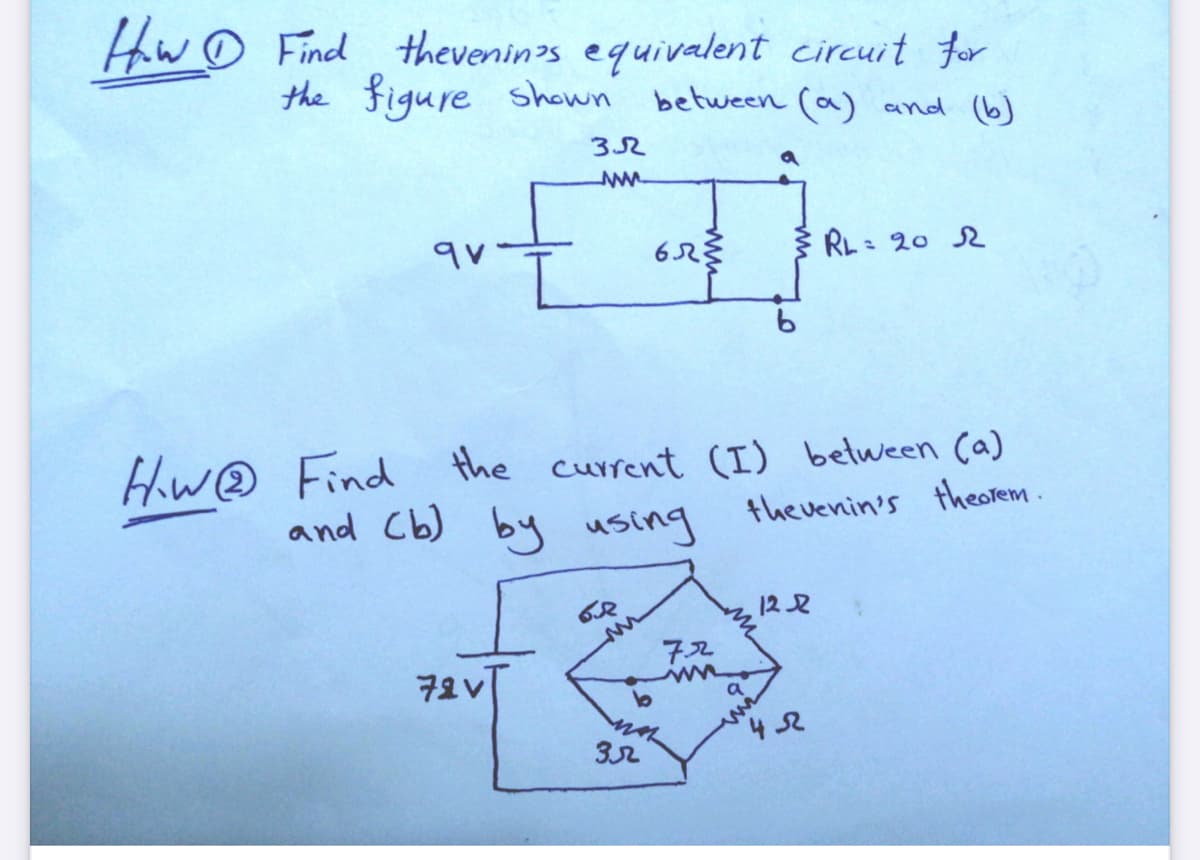 H.W ① Find thevenin's equivalent circuit for
the figure shown between (a) and (b)
3Ω
a
9v
6Ω
RL = 20 Ω
b
H.W ② Find the current (I) between (a)
and (b) by using thevenin's theorem.
6Ω
12Ω
7Ω
72 v
b
a
4Ω
3Ω